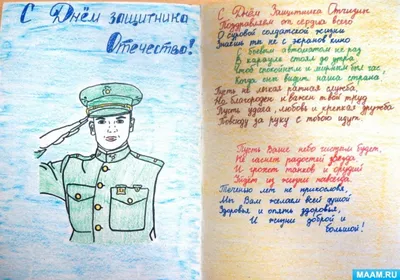 С Днём защитника
Отечества!
С Днём Защитника Отчизны
Поздравляем от сердца всего
О суровой солдатской жизни
Знаешь ты не с экранов кино
С боевым автоматом не раз
В карауле стоял до утра
Чтоб спокойным и мирным был час,
Когда сны видит наша страна,
Пусть не легка ратная служба,
Но благороден и важен твой труд
Пусть удача, любовь и крепкая дружба
Повсюду за руку с тобою идут.
Пусть Ваше небо чистым будет,
Не гаснет радостей звезда,
И грохот танков и орудий
Уйдёт из жизни навсегда.
лет не
Мы Вам желаем всей душой
Здоровья и опять здоровья,
И жизни доброй и
большой!
MAAM.RU